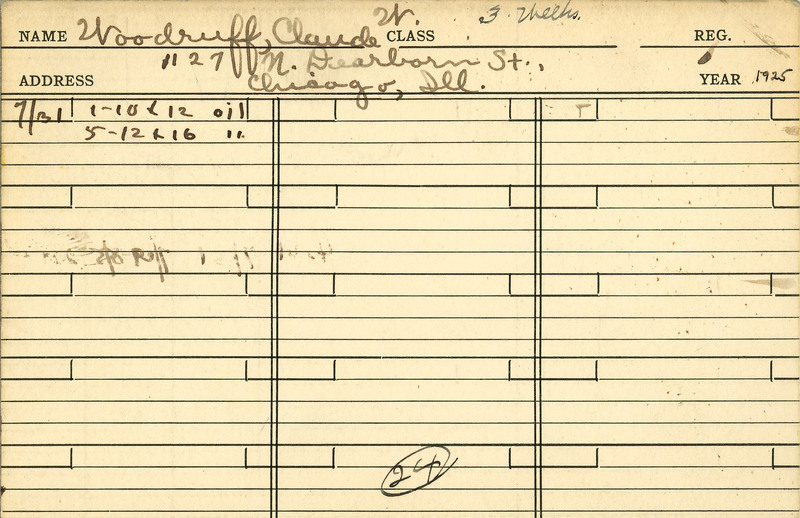 3 Weeks.
NAME Woodruff, Claude W. CLASS REG.
1127 N. Dearborn St.,
ADDRESS Chicago, Ill. YEAR 1925
7/31 1-10 x 12 oil
5-12 x 16 "
24